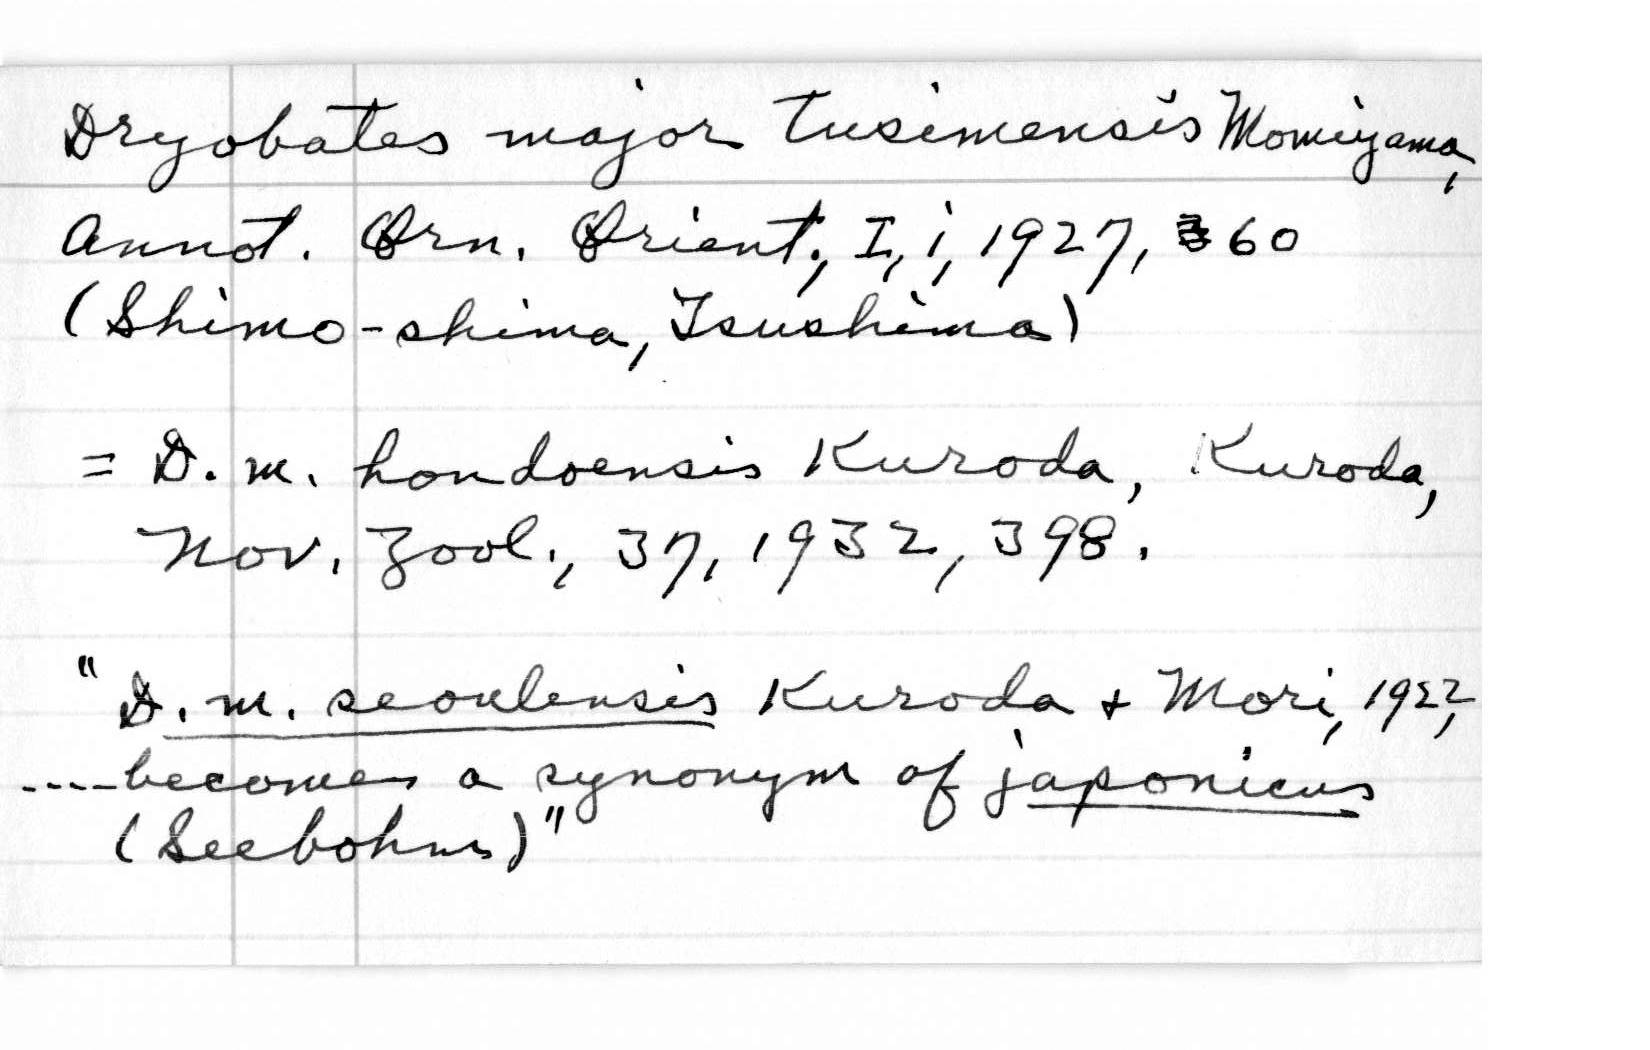 Dryobates major tusimensis Momiyama,
Annot. Orn. Orient., I, i, 1927, 60
(Shimo-shima, Tsushima)
= D. m. hondoensis Kuroda, Kuroda,
Nov. Zool., 37, 1932, 398.
"D. m. seoulensis Kuroda + Mori, 1922,
----becomes a synonym of japonicus
(Seebohm)"